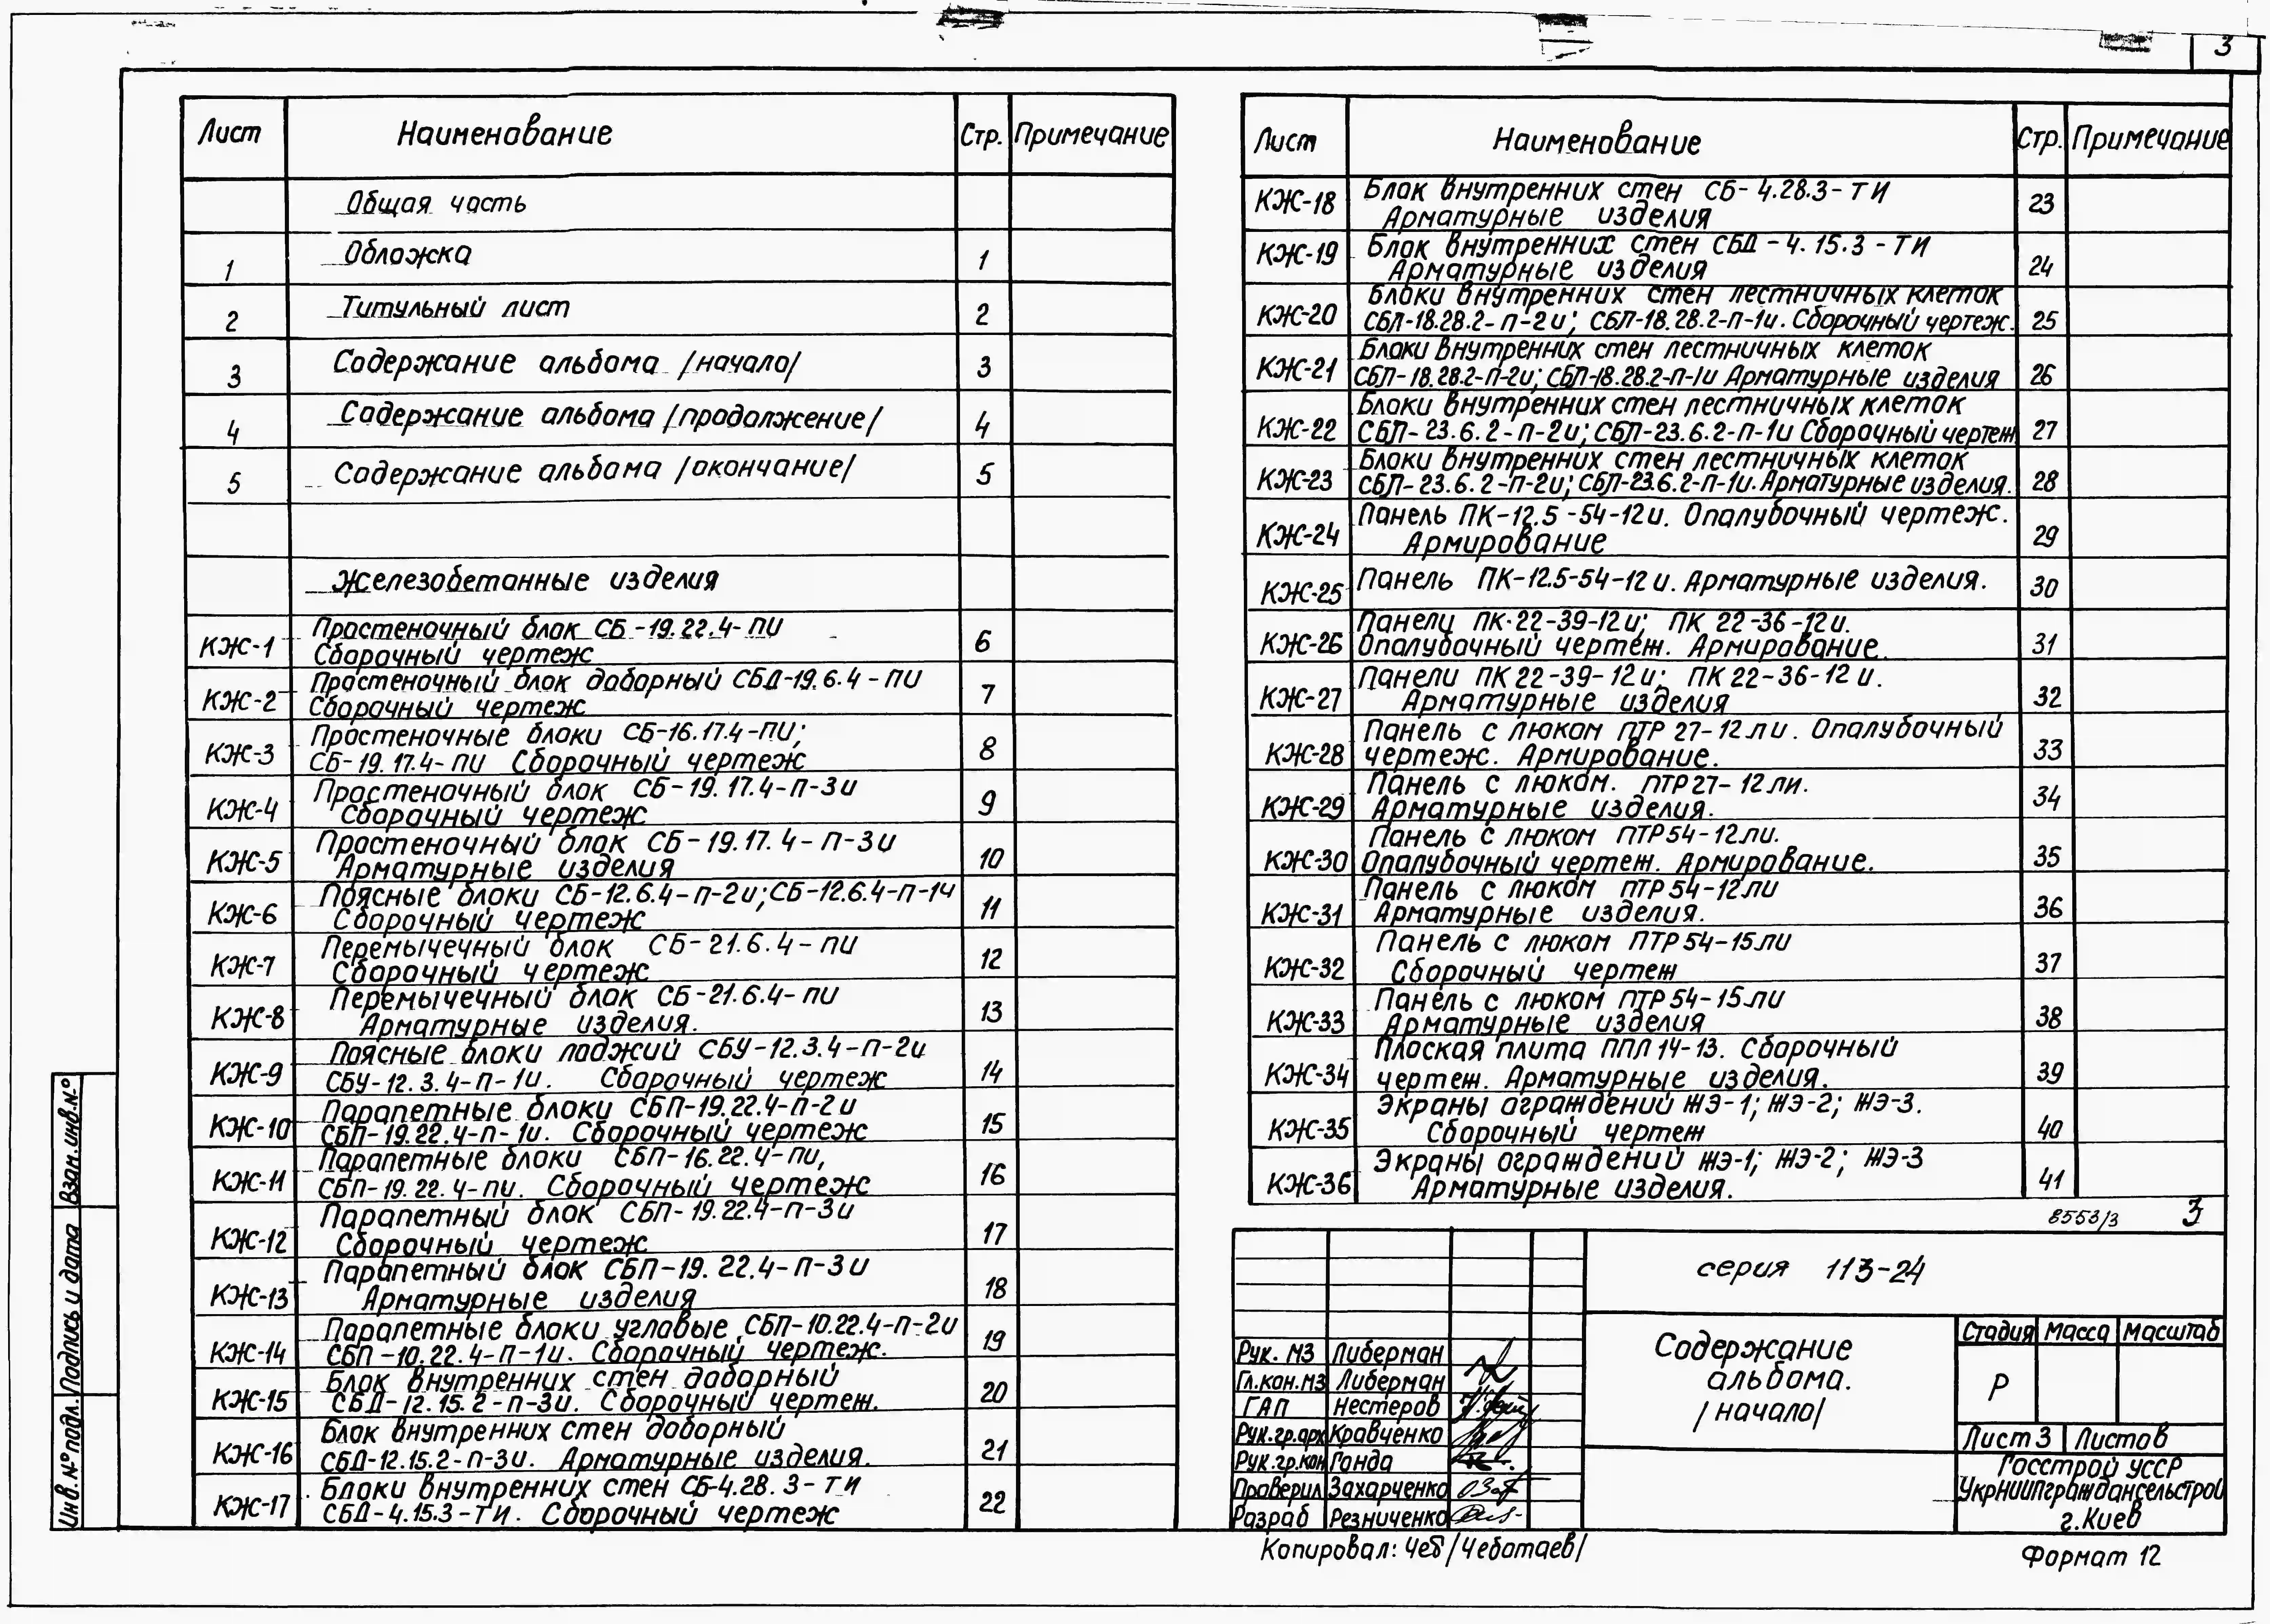 3
Лист Наименование Стр. Примечание
Общая часть
1 Обложка 1
2 Титульный лист 2
3 Содержание альбома /начало/ 3
4 Содержание альбома /продолжение/ 4
5 Содержание альбома /окончание/ 5
Железобетонные изделия
КЖ-1 Простеночный блок СБ-19.22.4-ПИ 6
Сборочный чертеж
КЖ-2 Простеночный блок доборный СБД-19.6.4-ПИ 7
Сборочный чертеж
КЖ-3 Простеночные блоки СБ-16.17.4-ПИ; 8
СБ-19.17.4-ПИ Сборочный чертеж
КЖ-4 Простеночный блок СБ-19.17.4-П-3и 9
Сборочный чертеж
КЖ-5 Простеночный блок СБ-19.17.4-П-3и 10
Арматурные изделия
КЖ-6 Поясные блоки СБ-12.6.4-П-2и; СБ-12.6.4-П-1ч 11
Сборочный чертеж
КЖ-7 Перемычечный блок СБ-21.6.4-ПИ 12
Сборочный чертеж
КЖ-8 Перемычечный блок СБ-21.6.4-ПИ 13
Арматурные изделия.
КЖ-9 Поясные блоки лоджий СБУ-12.3.4-П-2и 14
СБУ-12.3.4-П-1и. Сборочный чертеж
КЖ-10 Парапетные блоки СБП-19.22.4-П-2и 15
СБП-19.22.4-П-1и. Сборочный чертеж
КЖ-11 Парапетные блоки СБП-16.22.4-ПИ, 16
СБП-19.22.4-ПИ. Сборочный чертеж
КЖ-12 Парапетный блок СБП-19.22.4-П-3и 17
Сборочный чертеж
КЖ-13 Парапетный блок СБП-19.22.4-П-3и 18
Арматурные изделия
КЖ-14 Парапетные блоки угловые СБП-10.22.4-П-2и 19
СБП-10.22.4-П-1и. Сборочный чертеж.
КЖ-15 Блок внутренних стен доборный 20
СБД-12.15.2-П-3и. Сборочный чертеж.
КЖ-16 Блок внутренних стен доборный 21
СБД-12.15.2-П-3и. Арматурные изделия.
КЖ-17 Блоки внутренних стен СБ-4.28.3-ТИ 22
СБД-4.15.3-ТИ. Сборочный чертеж
Лист Наименование Стр. Примечание
КЖ-18 Блок внутренних стен СБ-4.28.3-ТИ 23
Арматурные изделия
КЖ-19 Блок внутренних стен СБД-4.15.3-ТИ 24
Арматурные изделия
КЖ-20 Блоки внутренних стен лестничных клеток 25
СБЛ-18.28.2-П-2и; СБЛ-18.28.2-П-1и. Сборочный чертеж.
КЖ-21 Блоки внутренних стен лестничных клеток 26
СБЛ-18.28.2-П-2и; СБЛ-18.28.2-П-1и Арматурные изделия
КЖ-22 Блоки внутренних стен лестничных клеток 27
СБЛ-23.6.2-П-2и; СБЛ-23.6.2-П-1и Сборочный чертеж
КЖ-23 Блоки внутренних стен лестничных клеток 28
СБЛ-23.6.2-П-2и; СБЛ-23.6.2-П-1и. Арматурные изделия.
КЖ-24 Панель ПК-12.5-54-12и. Опалубочный чертеж. 29
Армирование
КЖ-25 Панель ПК-12.5-54-12и. Арматурные изделия. 30
КЖ-26 Панели ПК-22-39-12и; ПК 22-36-12и. 31
Опалубочный чертеж. Армирование.
КЖ-27 Панели ПК 22-39-12и; ПК 22-36-12и. 32
Арматурные изделия
КЖ-28 Панель с люком ПТР 27-12ли. Опалубочный 33
чертеж. Армирование.
КЖ-29 Панель с люком. ПТР 27-12ли. 34
Арматурные изделия.
КЖ-30 Панель с люком ПТР 54-12ли. 35
Опалубочный чертеж. Армирование.
КЖ-31 Панель с люком ПТР 54-12ли 36
Арматурные изделия.
КЖ-32 Панель с люком ПТР 54-15ли 37
Сборочный чертеж
КЖ-33 Панель с люком ПТР 54-15ли 38
Арматурные изделия
КЖ-34 Плоская плита ППЛ 14-13. Сборочный 39
чертеж. Арматурные изделия.
КЖ-35 Экраны ограждений ЖЭ-1; ЖЭ-2; ЖЭ-3. 40
Сборочный чертеж
КЖ-36 Экраны ограждений ЖЭ-1; ЖЭ-2; ЖЭ-3 41
Арматурные изделия.
8553/3 3
серия 113-24
Содержание
альбома.
/начало/
Стадия Масса Масштаб
Р
Лист 3 Листов
Госстрой УССР
УкрНИИПграждансельстрой
г.Киев
Рук. МЗ Либерман
Гл.кон.МЗ Либерман
ГАП Нестеров
Рук.гр.арх Кравченко
Рук.гр.кон Ганда
Проверил Захарченко
Разраб Резниченко
Копировал: Чеб /Чеботаев/
Формат 12
Взам.инв.№
Подпись и дата
Инв.№ подл.